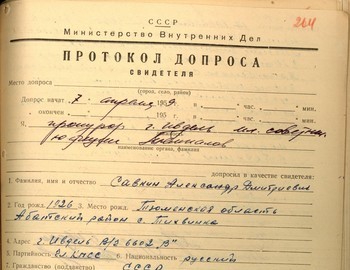 СССР
264
Министерство Внутренних Дел
ПРОТОКОЛ ДОПРОСА
СВИДЕТЕЛЯ
Место допроса
(город, село, район)
Допрос начат „7“ апреля 1959г. в час. мин.
„ окончен „ “ 195 г. в час. мин.
Я, прокурор г. Ивдель мл. советник
юстиции Темпалов
наименование органа, фамилия
допросил в качестве свидетеля:
1. Фамилия, имя и отчество Савкин Александр Дмитриевич
2. Год рожд. 1926 3. Место рожд. Тюменская область
Абатский район с. Тиквинка
4. Адрес г. Ивдель п/я 6602 „В“
5. Партийность 6. Национальность русский
7. Гражданство (подданство) СССР